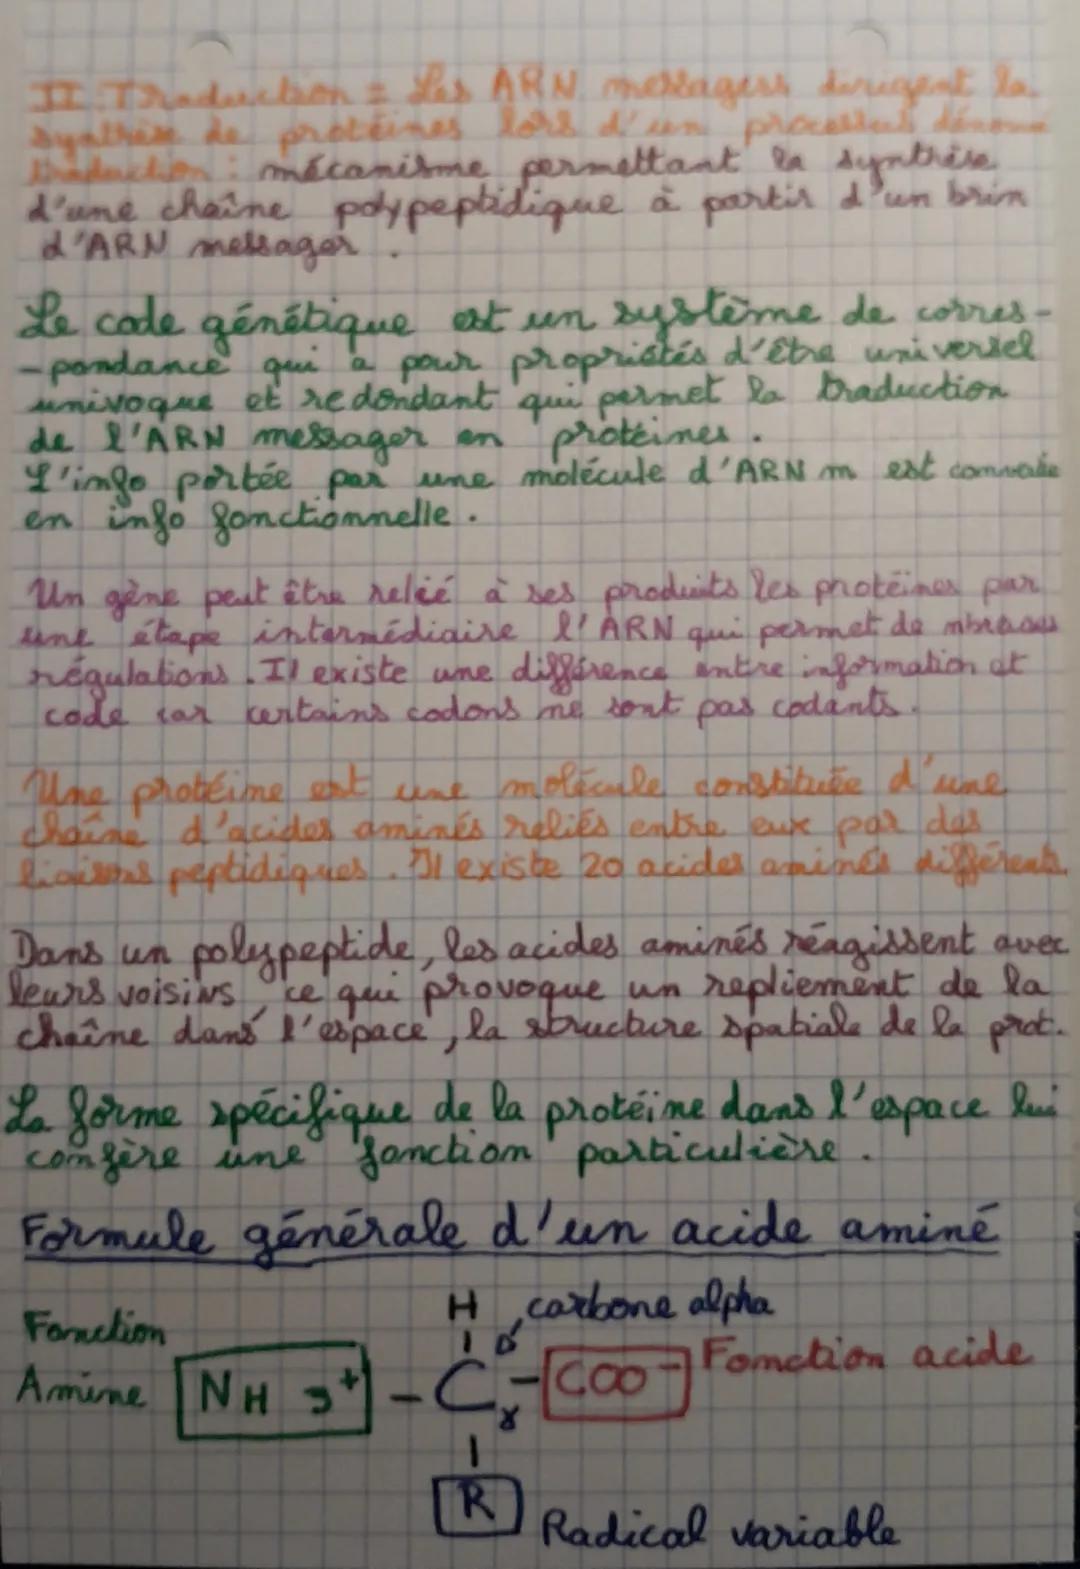 II Traduction = Les ARN messagers dirigent la
synthèse de protéines lors d'un processus dénommé
traduction : mécanisme permettant la synthèse
d'une chaîne polypeptidique à partir d'un brin
d'ARN messager .
Le code génétique est un système de corres-
-pondance qui a pour propriétés d'être universel
univoque et redondant qui permet la traduction
de l'ARN messager en protéines .
L'info portée par une molécule d'ARN m est convertie
en info fonctionnelle .
Un gène peut être relié à ses produits les protéines par
une étape intermédiaire l'ARN qui permet de nbreuses
régulations . Il existe une différence entre information et
code car certains codons ne sont pas codants .
Une protéine est une molécule constituée d'une
chaîne d'acides aminés reliés entre eux par des
liaisons peptidiques . Il existe 20 acides aminés différents
Dans un polypeptide, les acides aminés réagissent avec
leurs voisins ce qui provoque un repliement de la
chaîne dans l'espace, la structure spatiale de la prot.
La forme spécifique de la protéine dans l'espace lui
confère une fonction particulière .
Formule générale d'un acide aminé
H carbone alpha
Fonction
Amine NH 3+ - C α - COO- Fonction acide
R
Radical variable